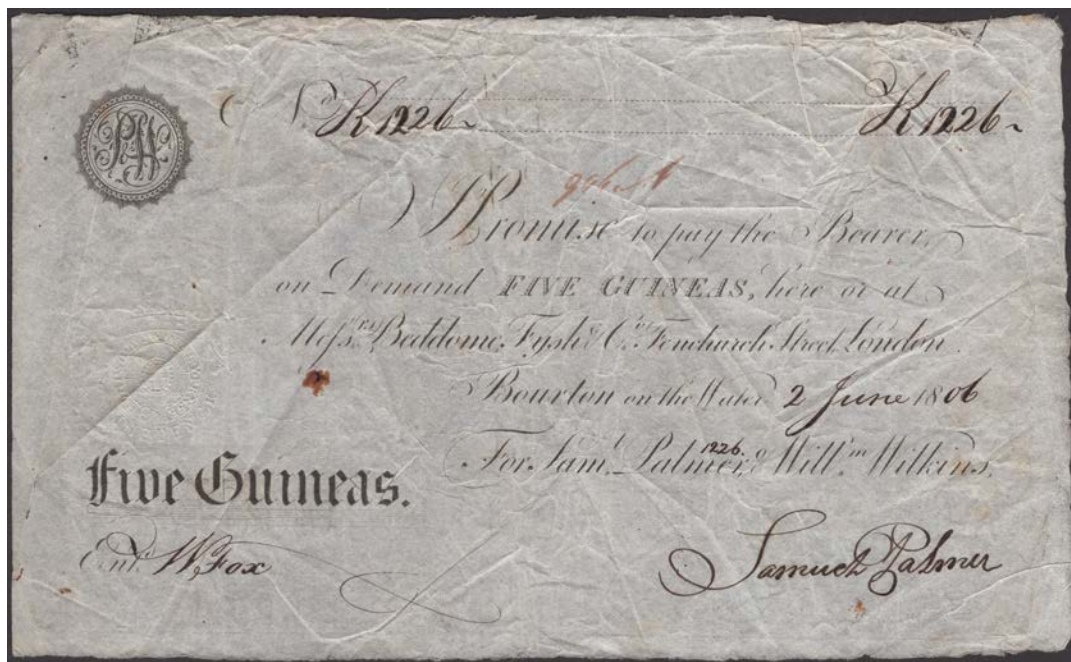 No K 1226 K 1226
I Promise to pay the Bearer
on Demand FIVE GUINEAS, here or at
Messrs. Beddome, Fysh & Co. Fenchurch Street London.
Bourton on the Water 2 June 1806
1226.
For Saml. Palmer, & Willm. Wilkins.
Five Guineas.
Entd. W, Fox
Samuel Palmer